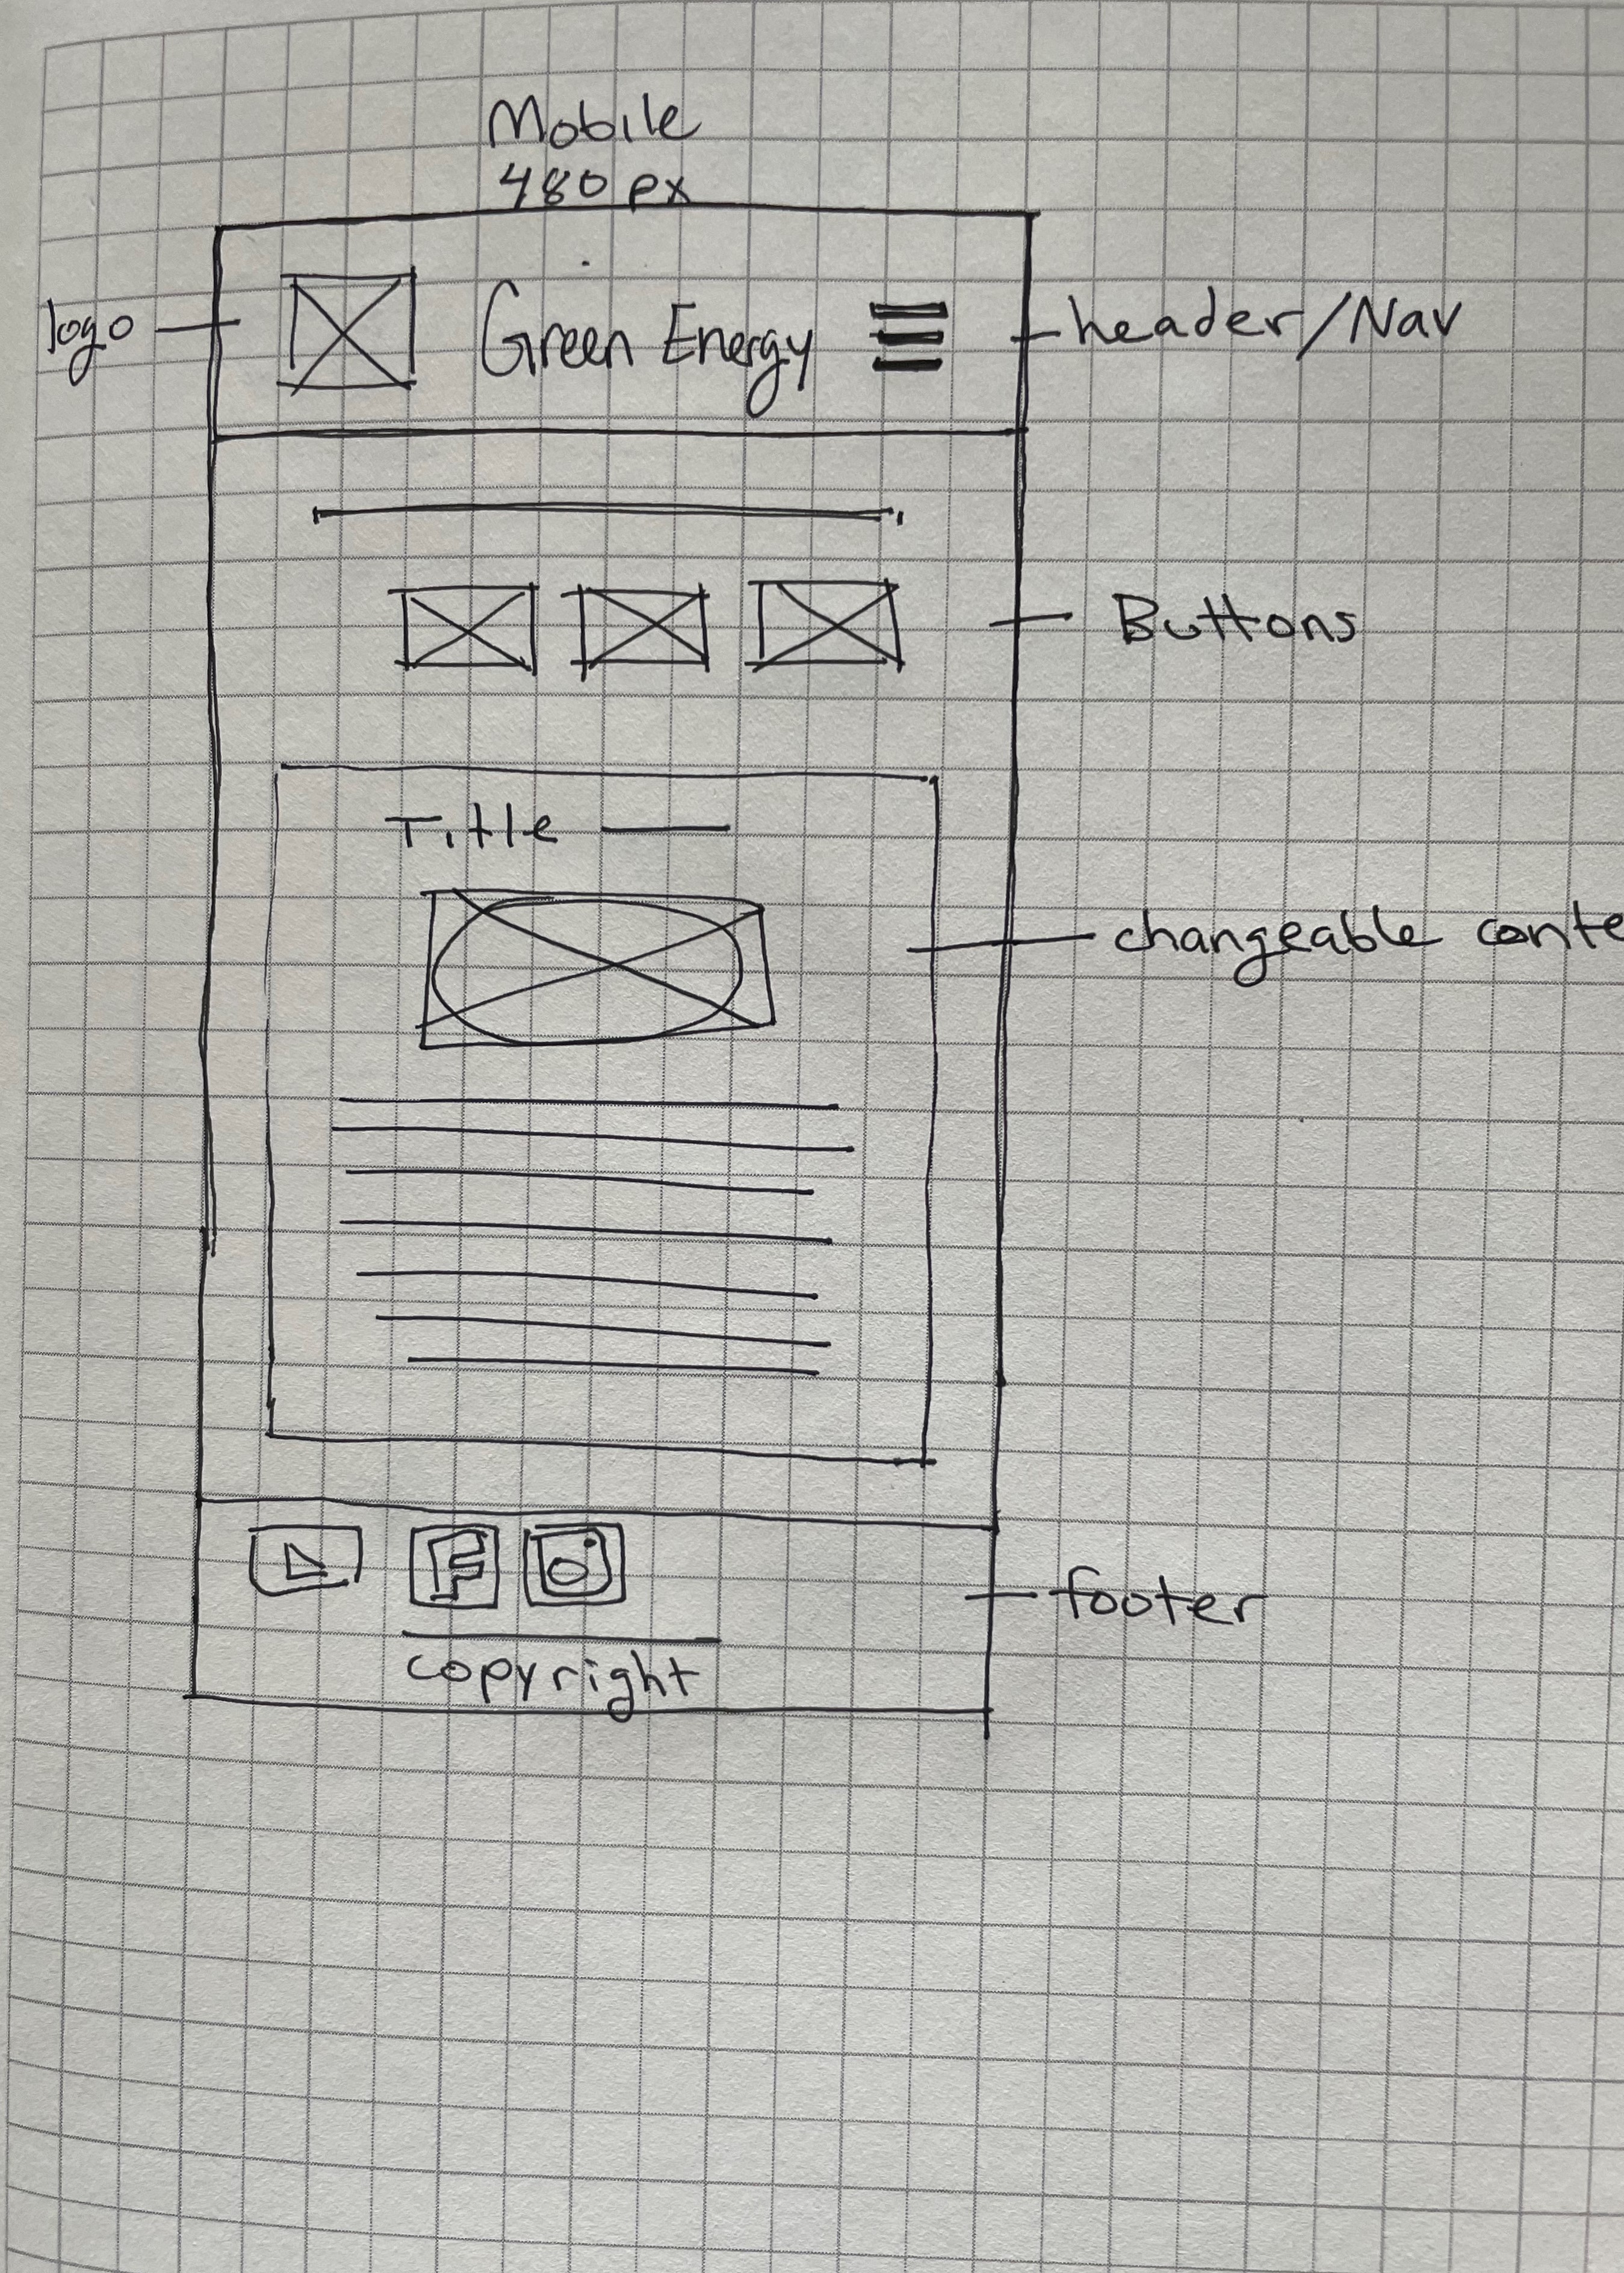 Mobile
480 px
logo
Green Energy
header/Nav
Buttons
Title
changeable conte
F
footer
copyright